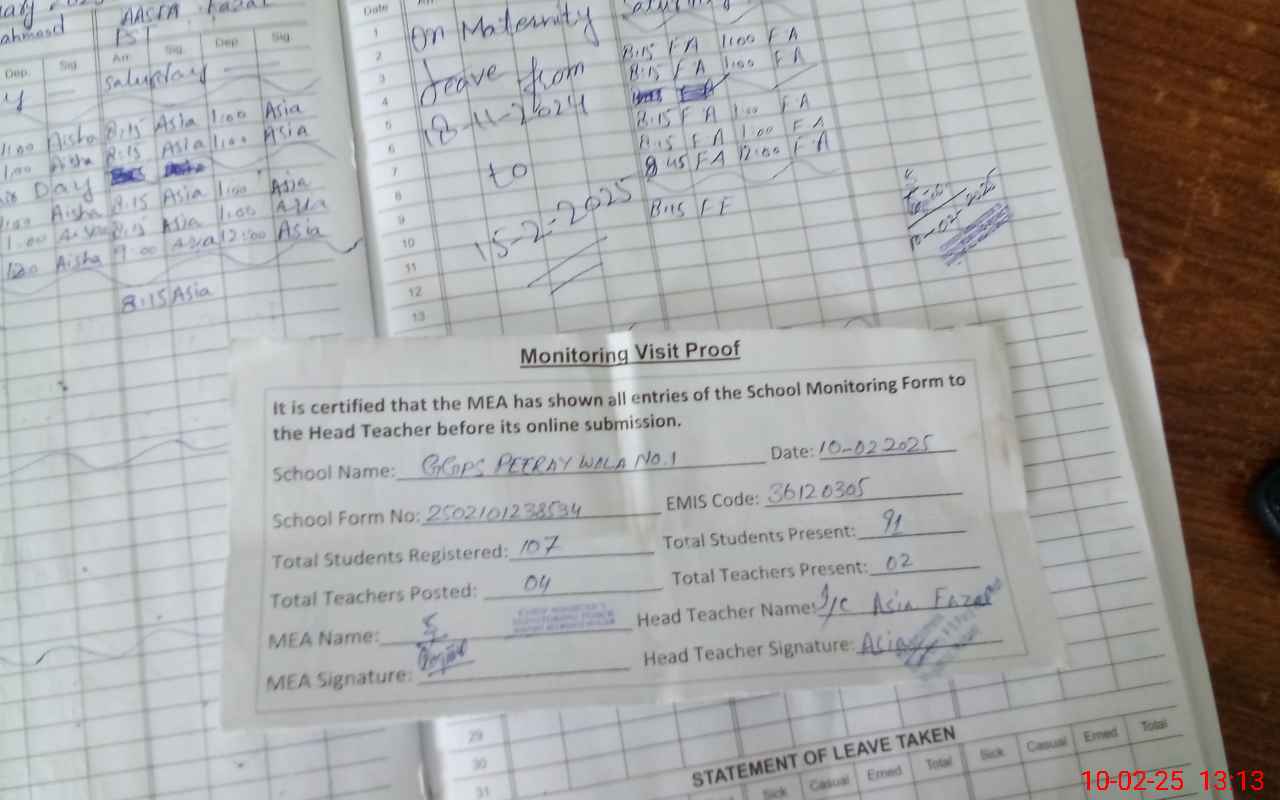 AASIA Fazal
Date
Dep. Sig. Arr. Sig. Dep. Sig.
Saturday
1:00 Aisha 8:15 Asia 1:00 Asia
1:00 Aisha 8:15 Asia 1:00 Asia
Day
1:00 Aisha 8:15 Asia 1:00 Asia
1:00 8:15 Asia 1:00
Aisha 9:00 12:00 Asia
8:15 Asia
1
2
3
4
5
6
7
8
9
10
11
12
13
On Maternity
leave from
18-11-2024
to
15-2-2025
8:15 FA 1:00 FA
8:15 FA 1:00 FA
8:15 FA 1:00 FA
8:15 FA 1:00 FA
8:45 FA 12:00 FA
8:15 FF
10-02-2025
Monitoring Visit Proof
It is certified that the MEA has shown all entries of the School Monitoring Form to
the Head Teacher before its online submission.
School Name: GGPS PETRAY WALA NO.1 Date: 10-02 2025
School Form No: 2502101238534 EMIS Code: 36120305
Total Students Registered: 107 Total Students Present: 91
Total Teachers Posted: 04 Total Teachers Present: 02
MEA Name: Head Teacher Name: I/C Asia Fazal
MEA Signature: Head Teacher Signature: Asia
29
30
31
STATEMENT OF LEAVE TAKEN
Sick Casual Erned Total Sick Casual Erned Total
10-02-25 13:13